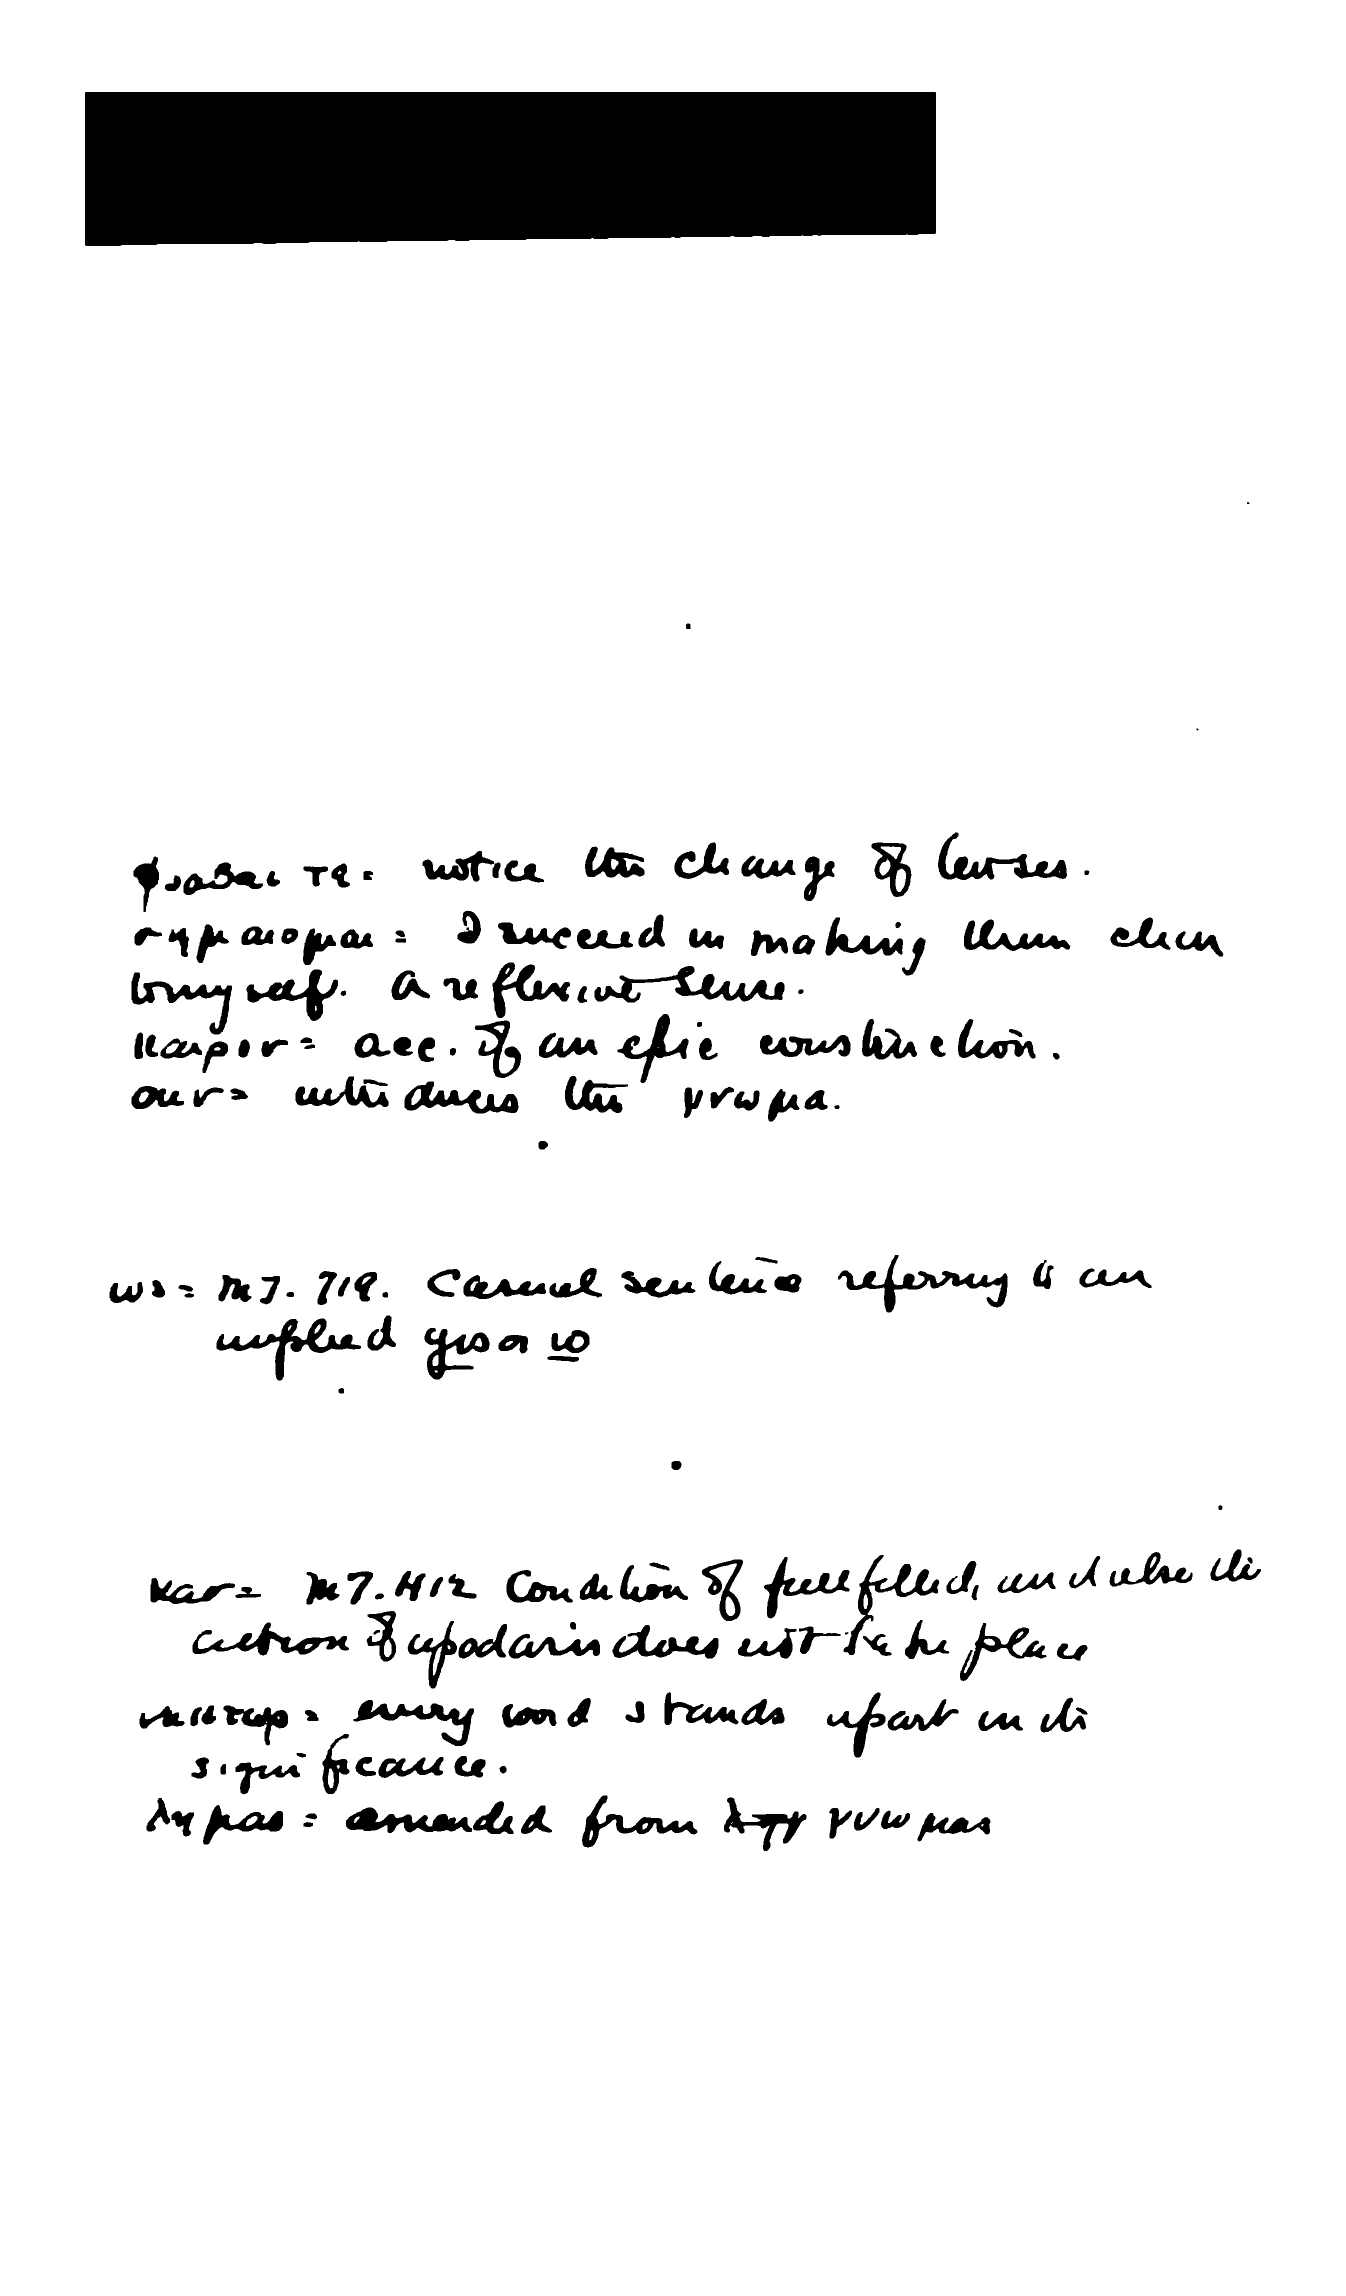 notice the change of tenses.
= I succeed in making them clear
to myself. A reflexive sense.
καιρον = acc. of an epic construction.
ουν = introduces the γνωμα.
ως = MT. 719. Casual sentence referring to an
implied yes or no
καν = MT. 412 Condition if fullfilled, and also the
action of apodasis does not take place
= every word stands apart in its
significance.
λημας = amended from γνωμας